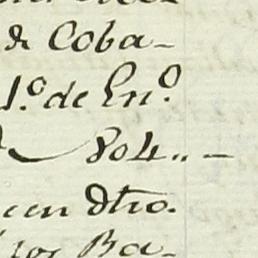 de Coba-
1.º de En.º
804.. -
en dho.
los Ba-